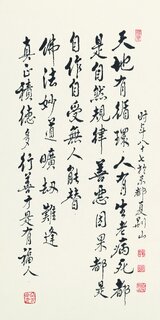 天地有循環人有生老病死都
是自然規律善惡因果都是
自作自受無人能替
佛法妙道曠劫難逢
真正積德多行善于是有福人
時年八十七於京都